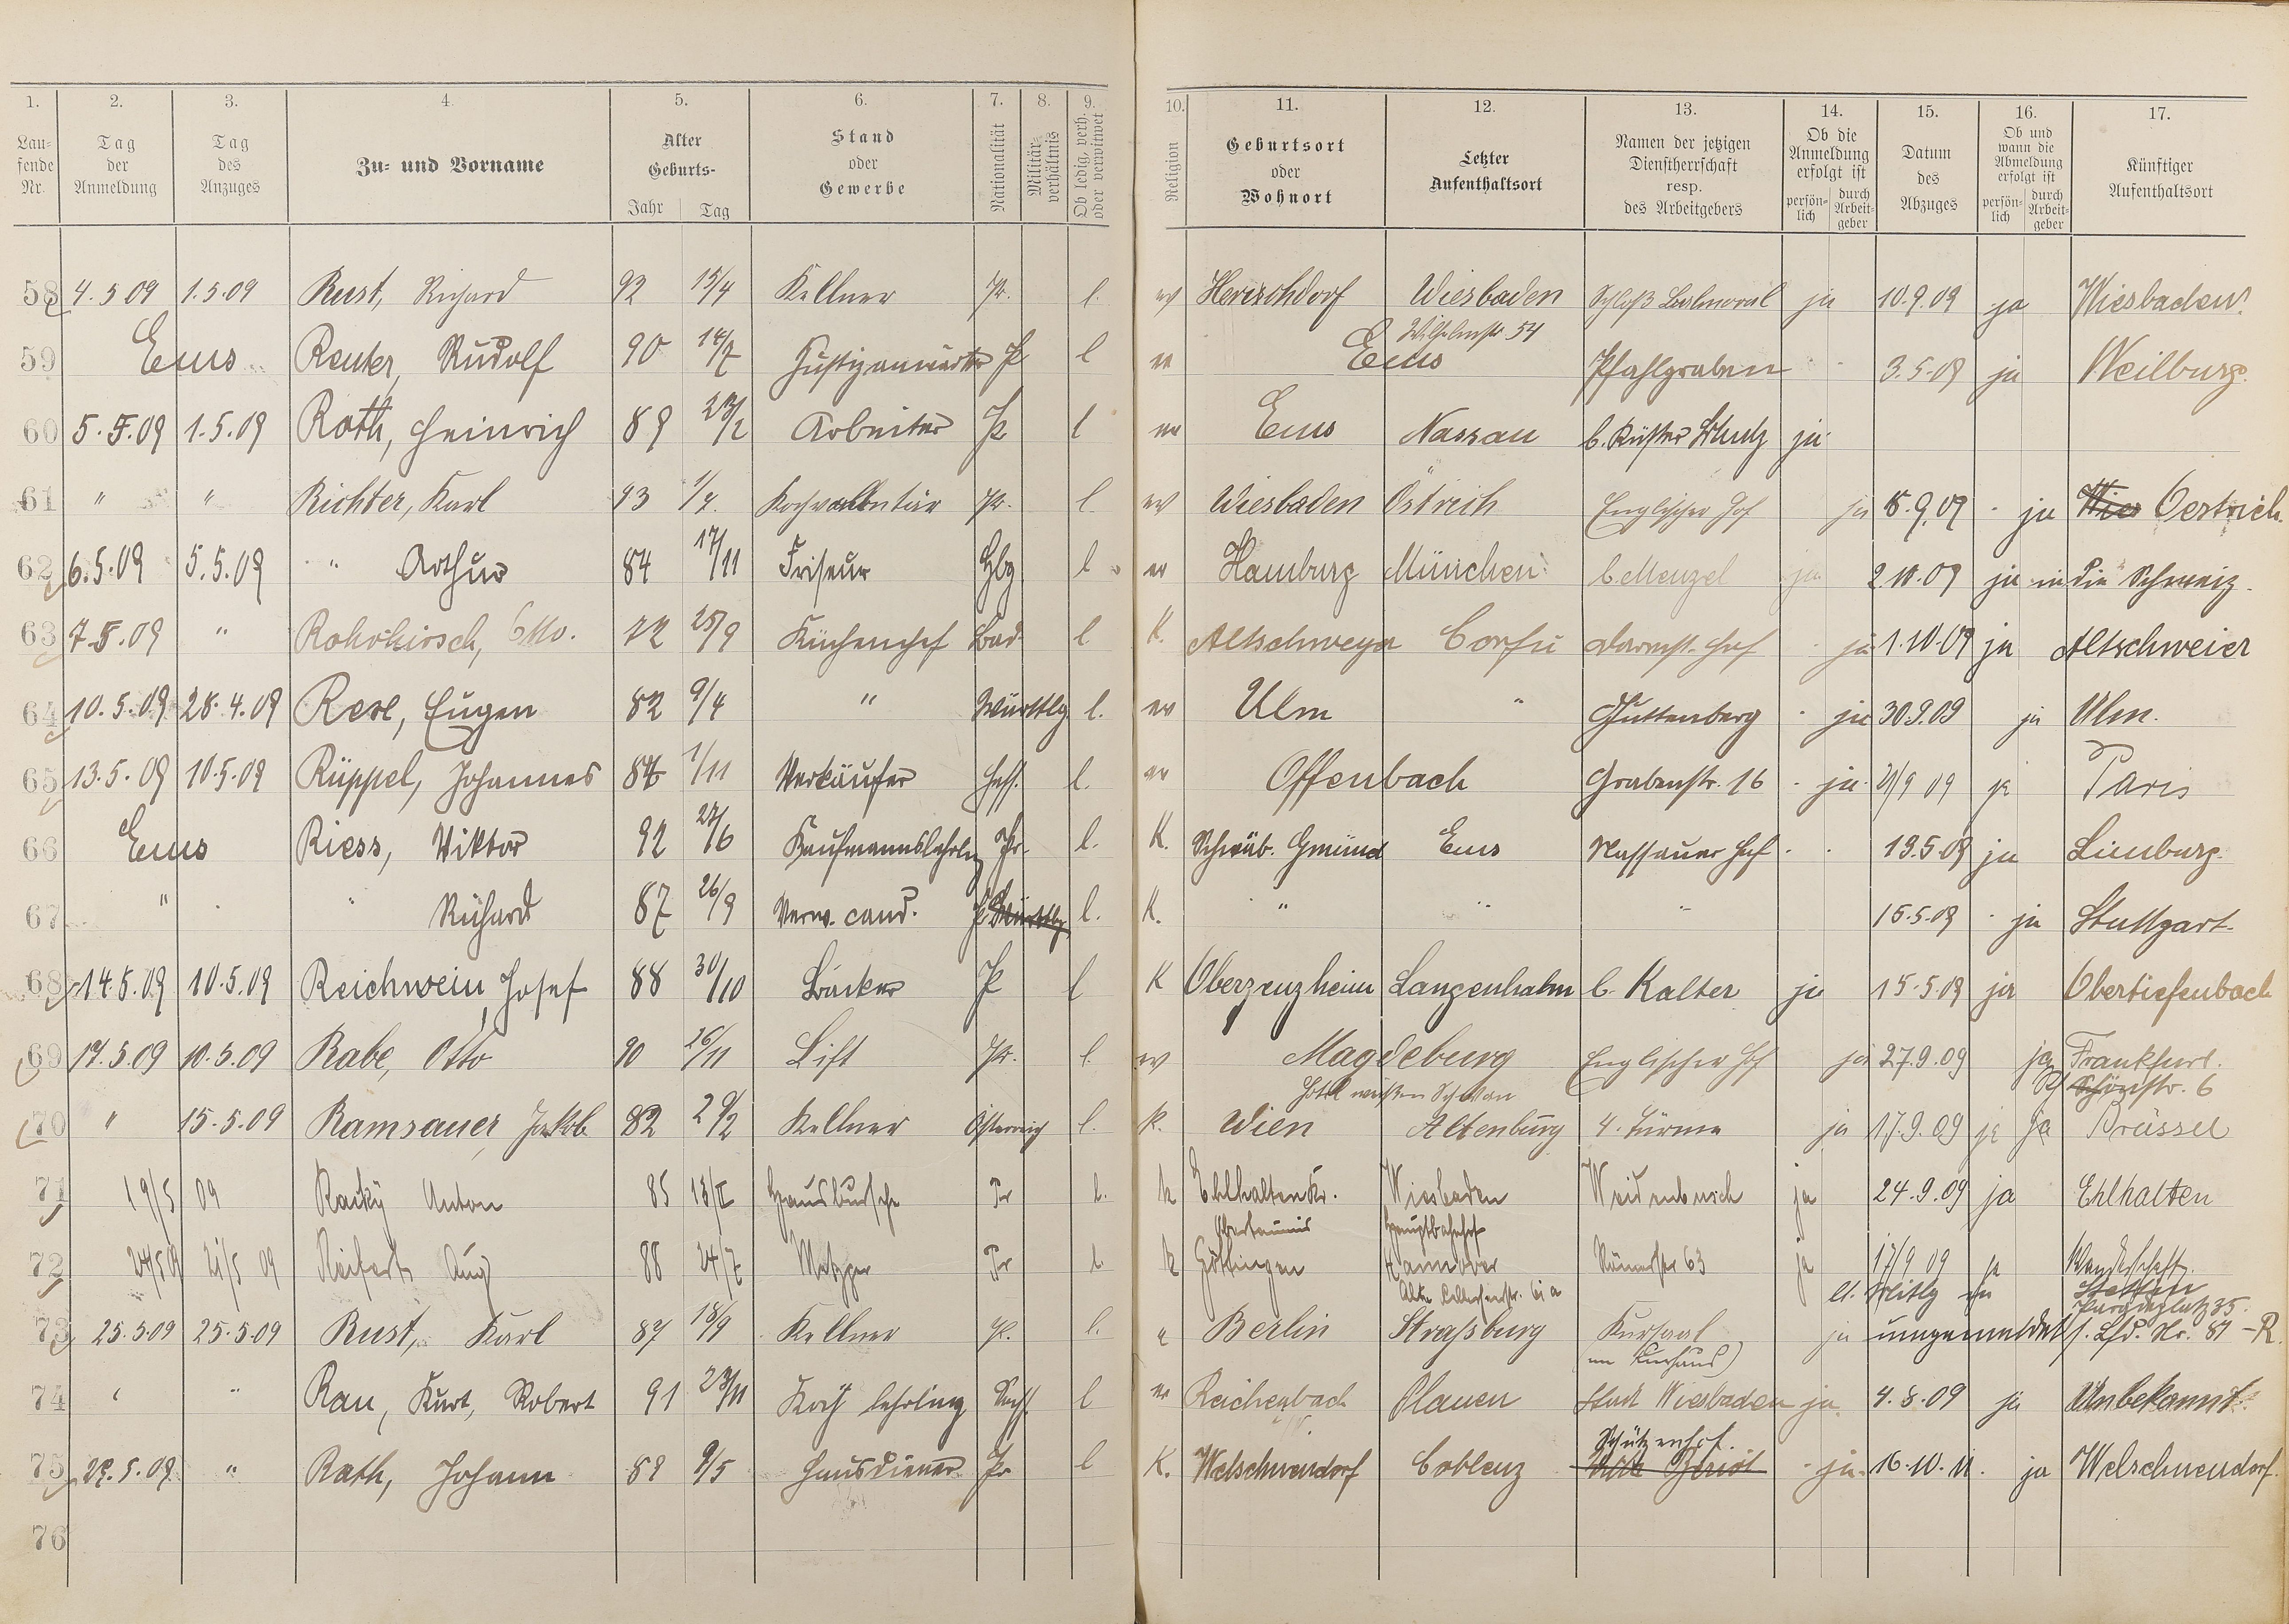 1. 2. 3. 4. 5. 6. 7. 8. 9. 10. 11. 12. 13. 14. 15. 16. 17.
Laufende Nr. Tag der Anmeldung Tag des Anzuges Zu- und Vorname Alter Geburts- Jahr Tag Stand oder Gewerbe Nationalität Militärverhältnis Ob ledig, verh. oder verwitwet Religion Geburtsort oder Wohnort Letzter Aufenthaltsort Namen der jetzigen Dienstherrschaft resp. des Arbeitgebers Ob die Anmeldung erfolgt ist persönlich durch Arbeitgeber Datum des Abzuges Ob und wann die Abmeldung erfolgt ist persönlich durch Arbeitgeber Künftiger Aufenthaltsort
58 4.5.09 1.5.09 Rust, Richard 92 15/4 Kellner Pr. l. ev Herischdorf Wiesbaden Schloß Balmoral ja 10.9.09 ja Wiesbaden
Wilhelmstr. 54
59 Ems Reuter, Rudolf 90 Justizanwärter Pr l ev Ems Pfahlgraben 3.5.09 ja Weilburg.
60 5.5.09 1.5.09 Roth, Heinrich 89 23/2 Arbeiter Pr l ev Ems Nassau b. Küster ja
61 " " Richter, Karl 93 Kochvolontär Pr. l. ev Wiesbaden Östrich Englischer Hof ja 15.9.09 ja Wies Oestrich.
62 6.5.09 5.5.09 " Arthur 84 17/11 Friseur Hbg l ev Hamburg München b. Menzel ja 2.10.09 ja in die Schweiz.
63 7.5.09 " Rohrhirsch, 25/9 Küchenchef Bad l K. Altschweyer Corfu Darmst. Hof ja 1.10.09 ja Altschweier
64 10.5.09 28.4.09 Eugen 82 9/4 " Württbg l. ev Ulm " Guttenberg ja 30.9.09 ja Ulm.
65 13.5.09 10.5.09 Rüppel, Johannes 1/11 Verkäufer Hess. l. ev Offenbach Grabenstr. 16 ja 09 ja Paris
66 Ems Riess, Viktor 92 27/6 Kaufmannslehrlg Pr. l. K. Schwäb. Gmünd Ems Nassauer Hof 13.5.09 ja Limburg.
67 " " Richard 87 26/9 Verw. cand. Pr Württbg l. K. " " " 15.5.09 ja Stuttgart.
68 14.5.09 10.5.09 Reichwein, Josef 88 30/10 Bäcker Pr l K Oberzeuzheim Langenhahn b. Kalter ja 15.5.09 ja Obertiefenbach
69 17.5.09 10.5.09 Rabe, Otto 90 26/11 Lift Pr. l. ev Magdeburg Englischer Hof ja 27.9.09 ja Frankfurt.
Hotel weißen Schwan 6
70 " 15.5.09 Ramsauer, Jakob 82 Kellner Österreich l. K. Wien Altenburg 4. Türme ja 17.9.09 ja ja Brüssel
71 19/5 09 Racky Anton 85 Hausbursche Pr l. k Ehlhalten Kr. Wiesbaden Weidenbusch ja 24.9.09 ja Ehlhalten
Obertaunus Hauptbahnhof
72 24/5 09 21/5 09 Reifert Aug 88 24/7 Metzger Pr l. k Göttingen Hannover Römerstr 63 ja 17/9 09 ja
73 25.5.09 25.5.09 Rust, Karl 87 18/9 Kellner Pr. l. Berlin Straßburg Kursaal ja umgemeldet s. Lfd. Nr. 81 -R.
(im Kurhaus)
74 " " Rau, Kurt, Robert 91 23/11 Kochlehrling Sachs. l ev Reichenbach Plauen Stadt Wiesbaden ja 4.8.09 ja Unbekannt.
Schützenhof.
75 29.5.09 " Rath, Johann 89 9/5 Hausdiener Pr l K. Welschneudorf Coblenz ja 16.10.11. ja Welschneudorf.
76